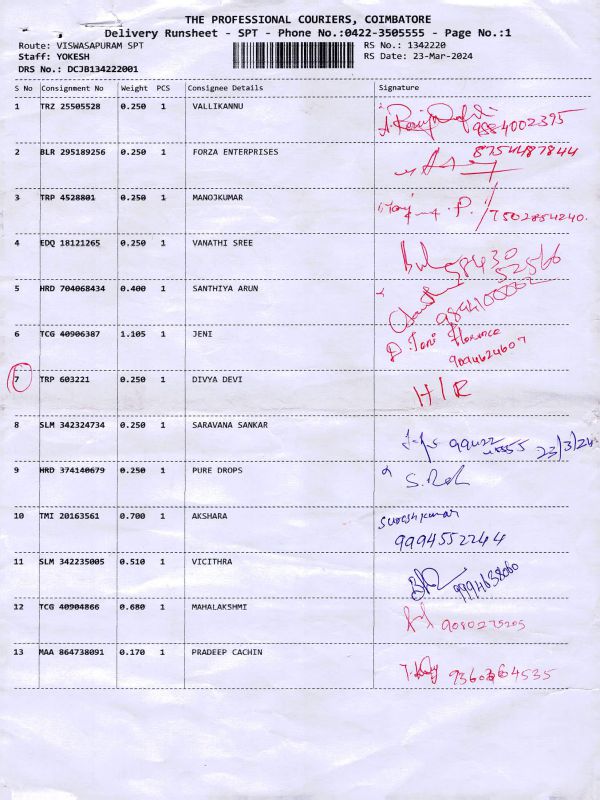 THE PROFESSIONAL COURIERS, COIMBATORE
Delivery Runsheet - SPT - Phone No.:0422-3505555 - Page No.:1
Route: VISWASAPURAM SPT RS No.: 1342220
Staff: YOKESH RS Date: 23-Mar-2024
DRS No.: DCJB134222001
S No Consignment No Weight PCS Consignee Details Signature
1 TRZ 25505528 0.250 1 VALLIKANNU
9884002395
2 BLR 295189256 0.250 1 FORZA ENTERPRISES 8754487844
3 TRP 4528801 0.250 1 MANOJKUMAR
P. / 7502854240.
4 EDQ 18121265 0.250 1 VANATHI SREE
98430
52566
5 HRD 704068434 0.400 1 SANTHIYA ARUN
9894100002
6 TCG 40906387 1.105 1 JENI
D. Jeni Florence
9094624607
7 TRP 603221 0.250 1 DIVYA DEVI
H/R
8 SLM 342324734 0.250 1 SARAVANA SANKAR
99422
23/3/24
9 HRD 374140679 0.250 1 PURE DROPS
10 TMI 20163561 0.700 1 AKSHARA Sureshkumar
9994552244
11 SLM 342235005 0.510 1 VICITHRA
9994638060
12 TCG 40904866 0.680 1 MAHALAKSHMI
9080275205
13 MAA 864738091 0.170 1 PRADEEP CACHIN
9360364535